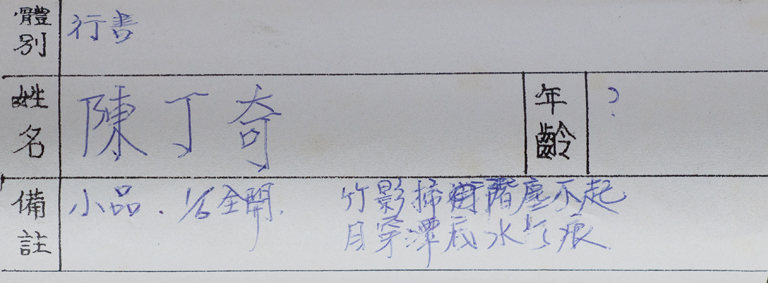 體別 行書
姓名 陳丁奇 年齡 ?
備註 小品. 1/6全開. 竹影掃階塵不起
月穿潭底水 痕